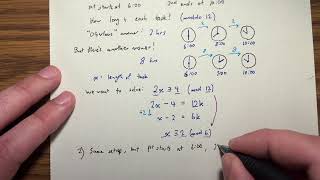 1st starts at 6:00 2nd ends at 10:00
How long is each task? (modulo 12)
"Obvious" answer: 2 hrs
6:00 8:00 10:00
But there's another answer!
8 hrs
6:00 2:00 10:00
x = length of task
We want to solve: 2x ≡ 4 (mod 12)
2x - 4 = 12k
÷2 x - 2 = 6k
x ≡ 2 (mod 6)
2) Same setup, but 1st starts at 2:00